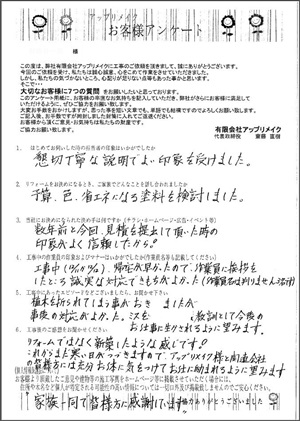 アップリメイク
お客様アンケート
様
この度は、弊社有限会社アップリメイクに工事のご依頼を頂きまして、誠にありがとうございます。
今回のご依頼を受け、私たちは誠心誠意、心をこめて作業をさせていただきました。
しかし、私たちの気づかないところ、心配りが足りない点等もあった事かと思います。
そこで・・・
大切なお客様に7つの質問 をお願いしたいと思っております。
このアンケート用紙に、お客様の率直なお気持ちを記入していただき、弊社がさらにお客様に満足して
いただけるように、ぜひご協力をお願い致します。
ご協力お願い致します。
有限会社アップリメイク
代表取締役 齋藤 直樹
1. はじめてお伺いした時の担当者の印象はいかがでしたか
懇切丁寧な説明でよい印象を受けました。
2. リフォームをお決めになるとき、ご家族でどんなことを話し合われましたか
予算、色、省エネになる塗料を検討しました。
3. 当社にお決めになられた決め手は何ですか(チラシ・ホームページ・広告・イベント等)
数年前と今回、見積を提出して頂いた時の
印象がよく信頼したから。
4. 工事中の作業員の印象およびマナーはいかがでしたか(作業員名も記載してください)
工事中
帰宅が早かったので、作業員に挨拶を
したところ誠実な対応でとてもよかった
5. 工事中にあったエピソードなどございましたら、お聞かせ下さい
植木を折られてしまう事がおきましたが
事後の対応がよかった。
教訓として今後の
お仕事に生かされるように望みます。
6. 工事後のご感想をお聞かせください
リフォームではなく新築したような感じです。
これからまだ寒い日がつづきますので、アップリメイク様と関連会社
の皆様方には充分お体に気をつけてお仕事に励まれるように望みます
家族一同で皆様方に感謝しています。
ご協力ありがとうございました